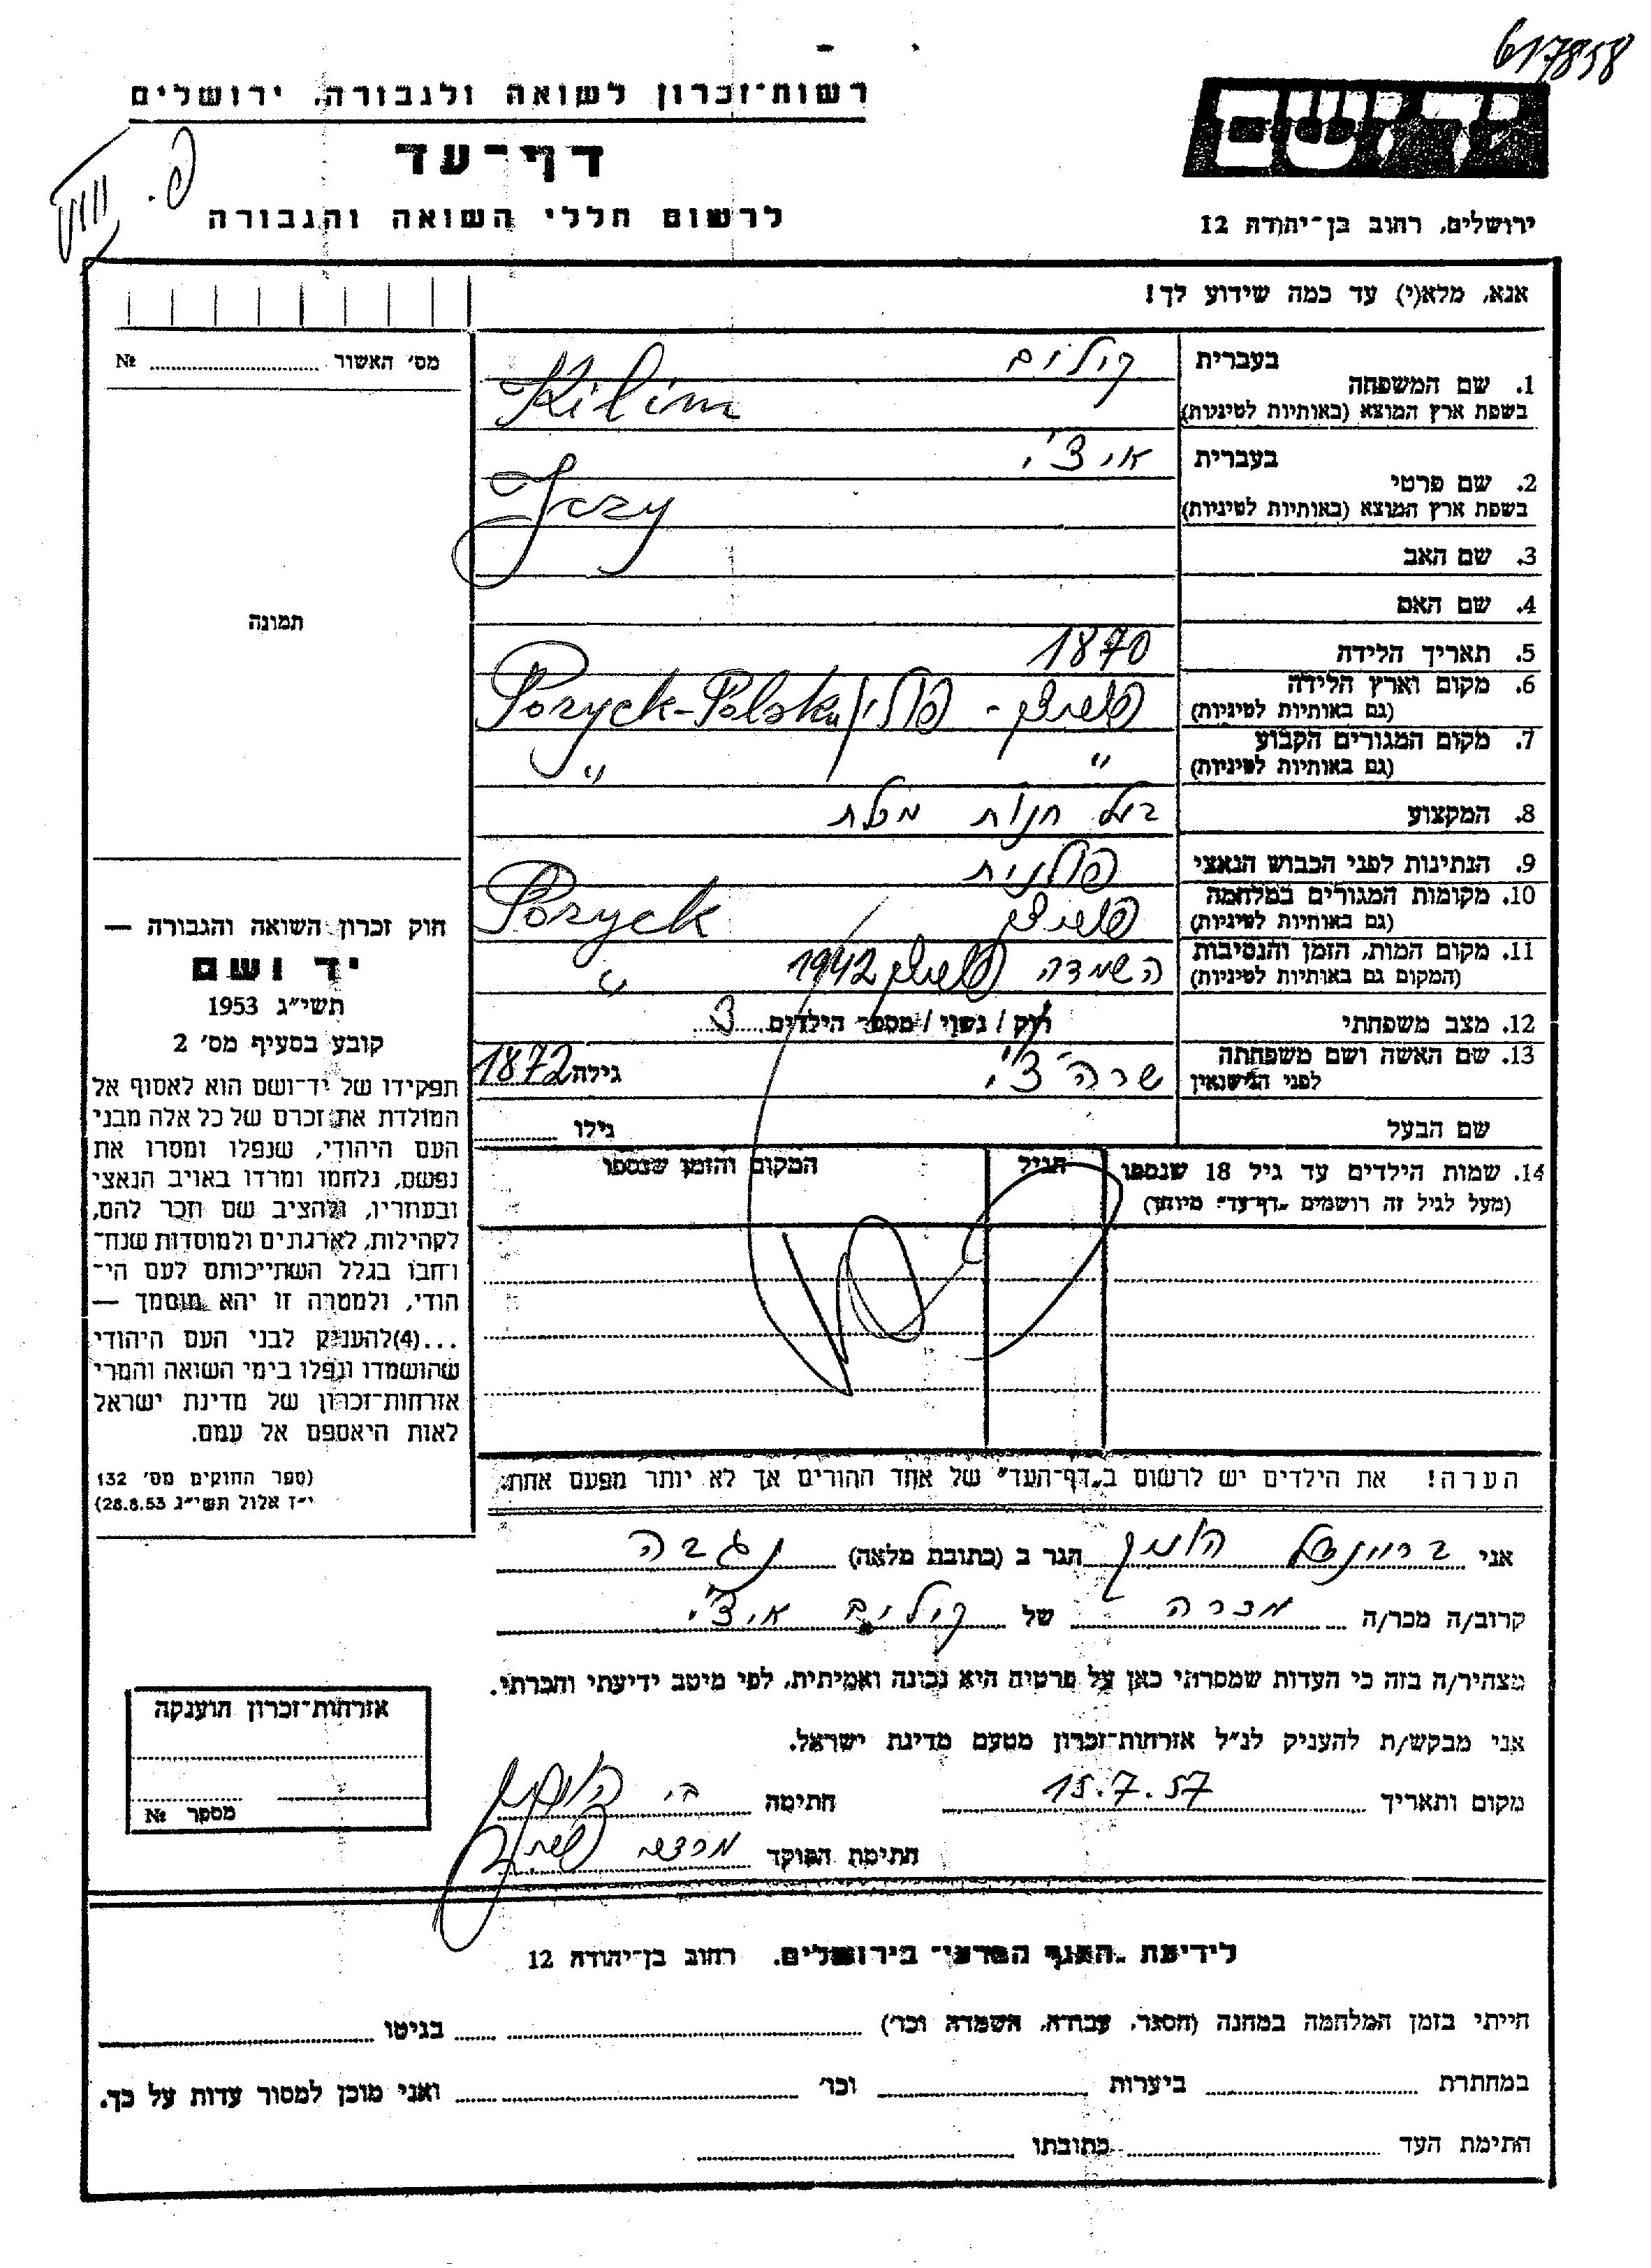 617858
רשות־זכרון לשואה ולגבורה, ירושלים
יד ושם
דף־עד
לרשום חללי השואה והגבורה
ירושלים, רחוב בן־יהודה 12
אנא, מלא(י) עד כמה שידוע לך!
מס׳ האשור № 
1. שם המשפחה בעברית קילים
בשפת ארץ המוצא (באותיות לטיניות) Kilim
2. שם פרטי בעברית איצ׳י
בשפת ארץ המוצא (באותיות לטיניות) Iczy
3. שם האב
4. שם האם
תמונה
5. תאריך הלידה 1870
6. מקום וארץ הלידה
(גם באותיות לטיניות) פוריצק - פולין Poryck-Polska
7. מקום המגורים הקבוע
(גם באותיות לטיניות) " "
8. המקצוע בעל חנות מכלת
9. הנתינות לפני הכבוש הנאצי פולנית
10. מקומות המגורים במלחמה
(גם באותיות לטיניות) פוריצק Poryck
11. מקום המות, הזמן והנסיבות
(המקום גם באותיות לטיניות) השמדה 1942 "
12. מצב משפחתי רוק / נשוי / מספר הילדים 3
13. שם האשה ושם משפחתה
לפני הנישואין שרה גילה 1872
שם הבעל גילו
14. שמות הילדים עד גיל 18 שנספו הגיל המקום והזמן שנספו
(מעל לגיל זה רושמים „דף־עד" מיוחד)
חוק זכרון השואה והגבורה —
יד ושם
תשי״ג 1953
קובע בסעיף מס׳ 2
תפקידו של יד־ושם הוא לאסוף אל
המולדת את זכרם של כל אלה מבני
העם היהודי, שנפלו ומסרו את
נפשם, נלחמו ומרדו באויב הנאצי
ובעוזריו, ולהציב שם וזכר להם,
לקהילות, לארגונים ולמוסדות שנח־
רבו בגלל השתייכותם לעם הי־
הודי, ולמטרה זו יהא מוסמך —
...(4)להעניק לבני העם היהודי
שהושמדו ונפלו בימי השואה והמרי
אזרחות־זכרון של מדינת ישראל
לאות היאספם אל עמם.
(ספר החוקים מס׳ 132
י״ז אלול תשי״ג 28.8.53)
הערה! את הילדים יש לרשום ב„דף־העד" של אחד ההורים אך לא יותר מפעם אחת.
אני הגר ב (כתובת מלאה) נגבה
קרוב/ה מכר/ה מכרה של קילים איצ׳י
מצהיר/ה בזה כי העדות שמסרתי כאן על פרטיה היא נכונה ואמיתית, לפי מיטב ידיעתי והכרתי.
אני מבקש/ת להעניק לנ״ל אזרחות־זכרון מטעם מדינת ישראל.
מקום ותאריך 15.7.57 חתימה
חתימת הפוקד
אזרחות־זכרון הוענקה
מספר №
לידיעת „האגף המדעי" בירושלים, רחוב בן־יהודה 12
הייתי בזמן המלחמה במחנה (הסגר, עבודה, השמדה וכו׳) בגיטו
במחתרת ביערות וכו׳ ואני מוכן למסור עדות על כך.
חתימת העד כתובתו